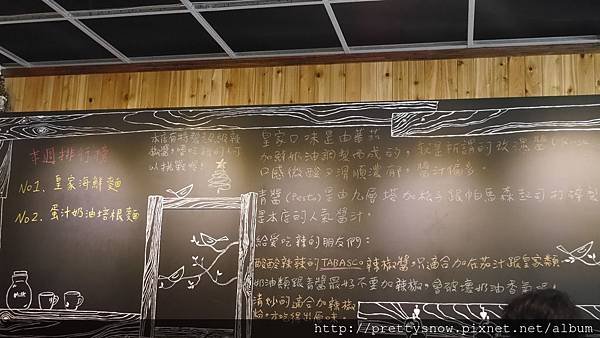 本週排行榜
No1. 皇家海鮮麵
No2. 蛋汁奶油培根麵
本店有特製
辣椒醬
以挑戰喔!
皇家口味是由蕃茄
加鮮奶油調製而成的,就是所謂的玫瑰醬
口感微酸又滑順濃郁,醬汁偏多。
青醬(Pesto)是由九層塔加松子跟帕馬森起司打碎製
是本店的人氣醬汁。
給愛吃辣的朋友們:
酸酸辣辣的TABASCO辣椒醬,只適合加在茄汁跟皇家類
奶油類跟青醬最好不要加辣椒,會破壞奶油香氣喔!
清炒的適合加辣椒
粉,才吃得出原味。
http://prettysnow.pixnet.net/album